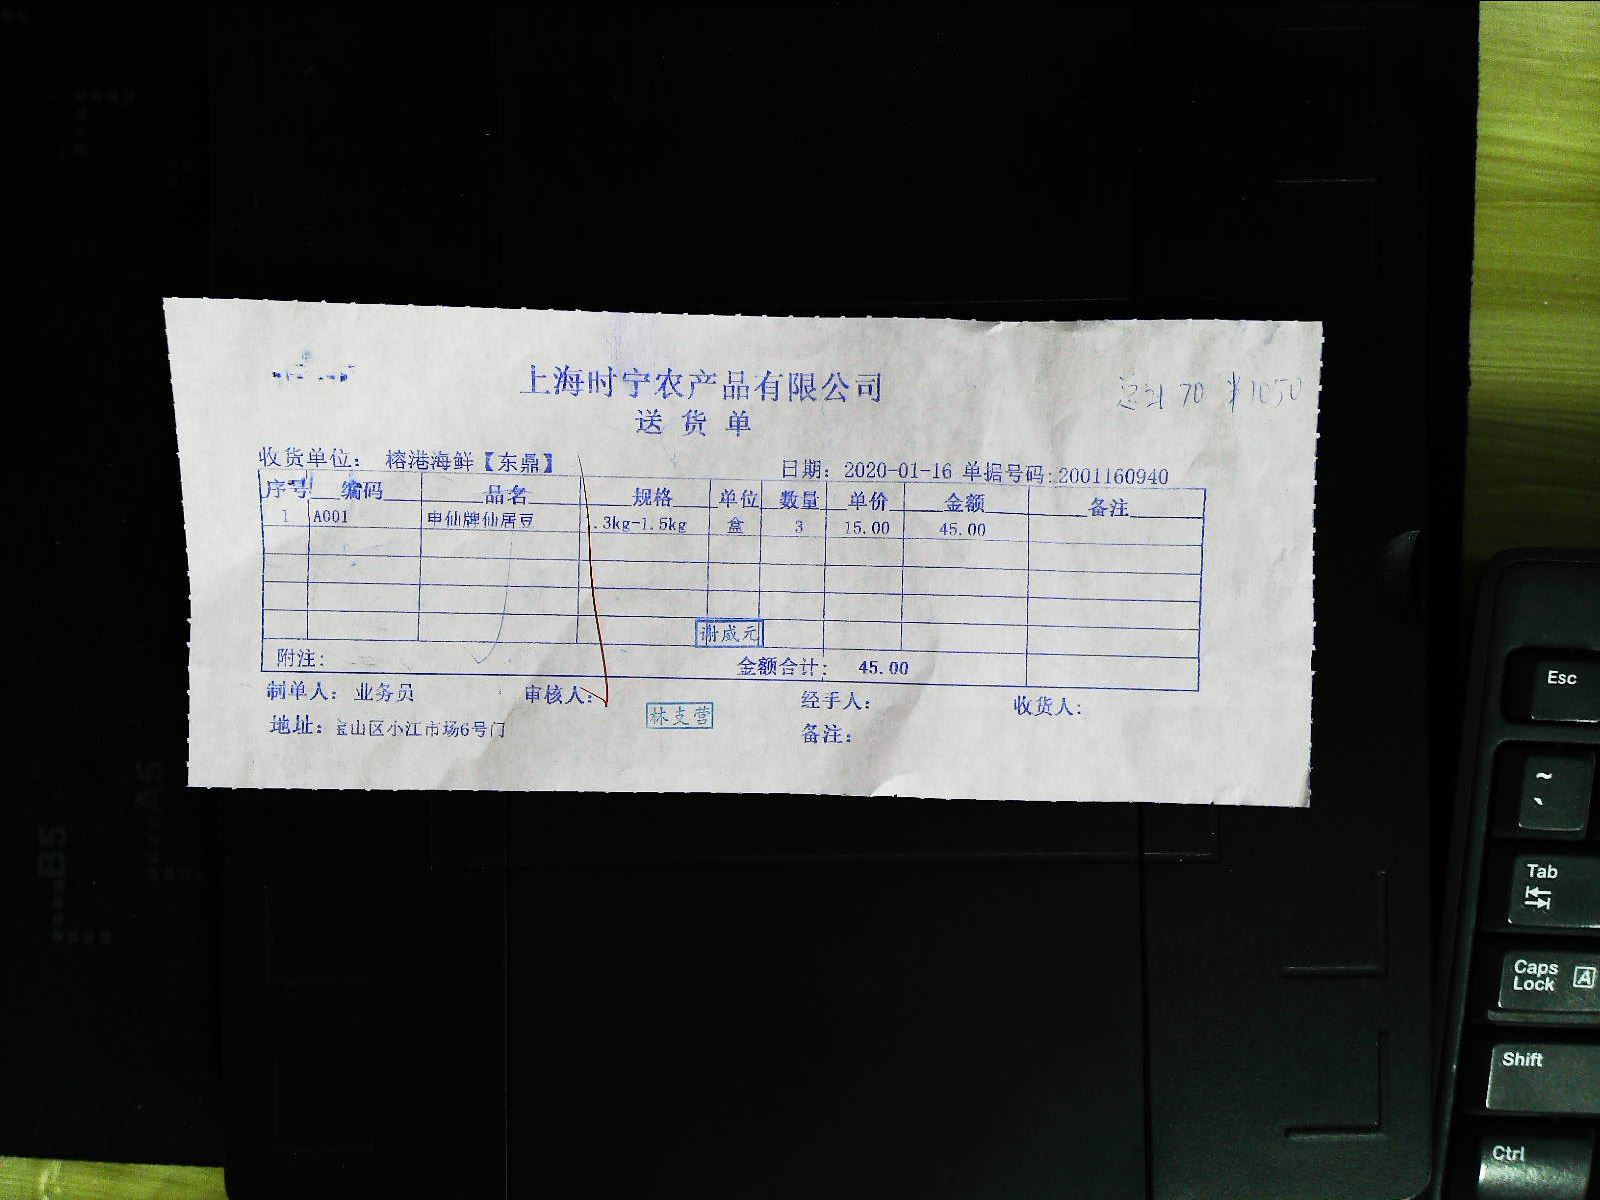 上海时宁农产品有限公司
总计 70 ¥1050
送货单
收货单位: 榕港海鲜【东鼎】 日期: 2020-01-16 单据号码:2001160940
序号 编码 品名 规格 单位 数量 单价 金额 备注
1 A001 申仙牌仙居豆 .3kg-1.5kg 盒 3 15.00 45.00
谢威元
附注: 金额合计: 45.00
制单人: 业务员 审核人: 经手人: 收货人:
林支营
地址: 宝山区小江市场6号门 备注:
B5
A5
Esc
~
Tab
Caps Lock A
Shift
Ctrl